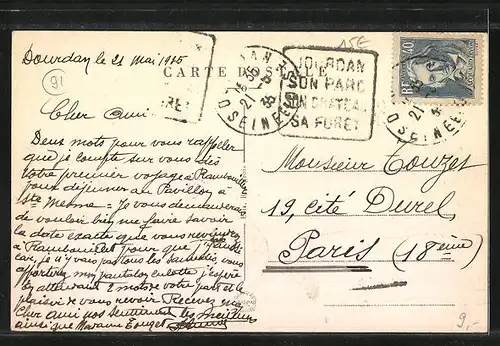 Dourdan le 21 Mai 1935
15€
91
CARTE POSTALE
DOURDAN
SON PARC
SON CHATEAU
SA FORET
RF 40
Cher ami
Deux mots pour vous rappeler
que je compte sur vous dès
votre premier voyage à Rambouillet
pour déjeuner au Pavillon à
Ste Mesme = Je vous demanderai
de vouloir bien me faire savoir
la date exacte que vous reviendrez
à Rambouillet pour que
car, je n'y vais pas tous les samedis, vous
apporterez mon pantalon culotte j'espère
En attendant 2 mots de votre part et le
plaisir de vous revoir Recevez mon
Cher ami nos sentiments les meilleurs
ainsi que Madame Touzet
Monsieur Touzet
19, cité Durel
Paris (18ème)
9,-